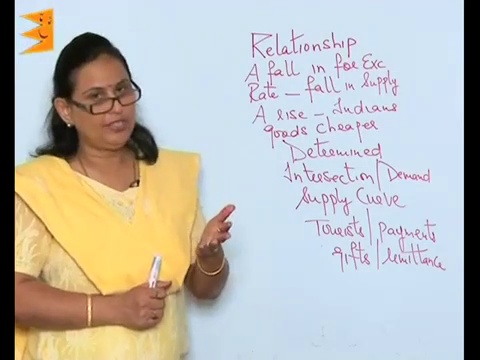 Relationship
A fall in for Exc
Rate – fall in Supply
A rise – Indians
goods cheaper
Determined
Intersection / Demand
Supply Curve
Tourists / payments
gifts / remittance